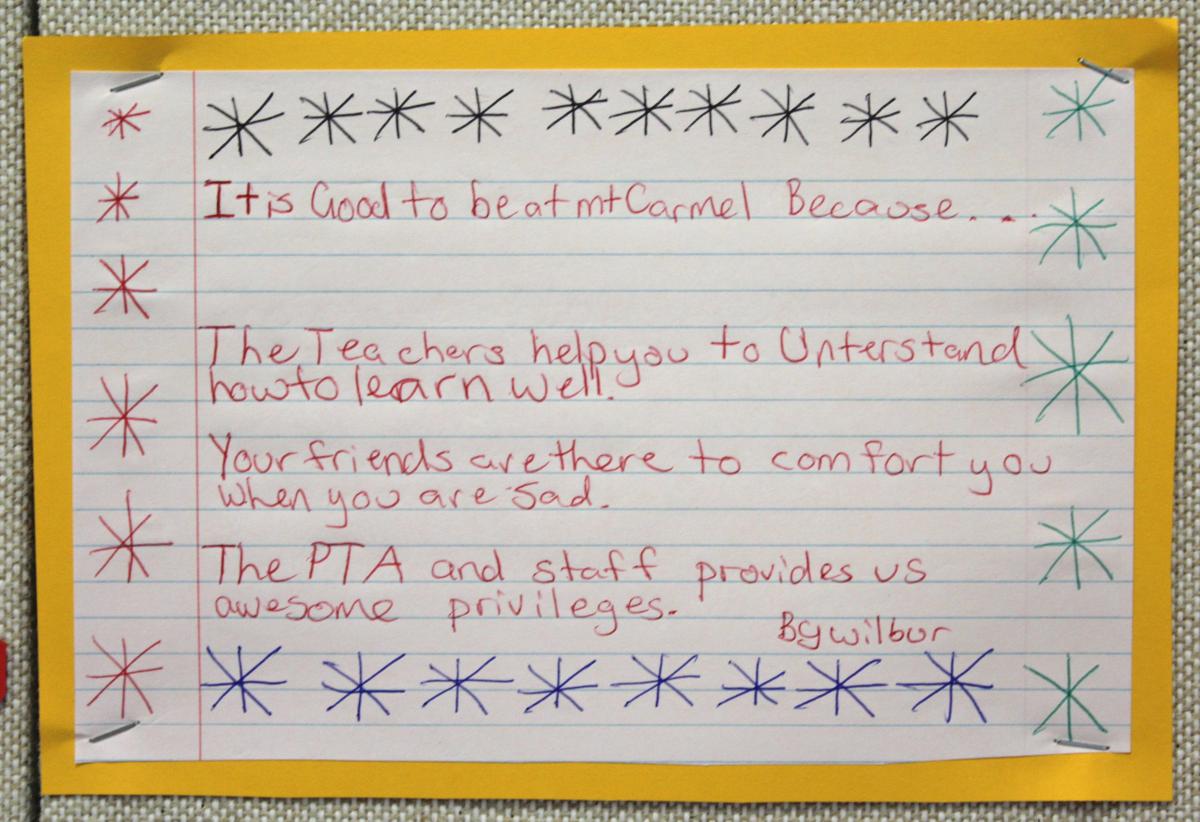 It is Good to be at mt Carmel Because....
The Teachers help you to Unterstand
how to learn well.
Your friends are there to comfort you
when you are sad.
The PTA and staff provides us
awesome privileges.
By wilbur